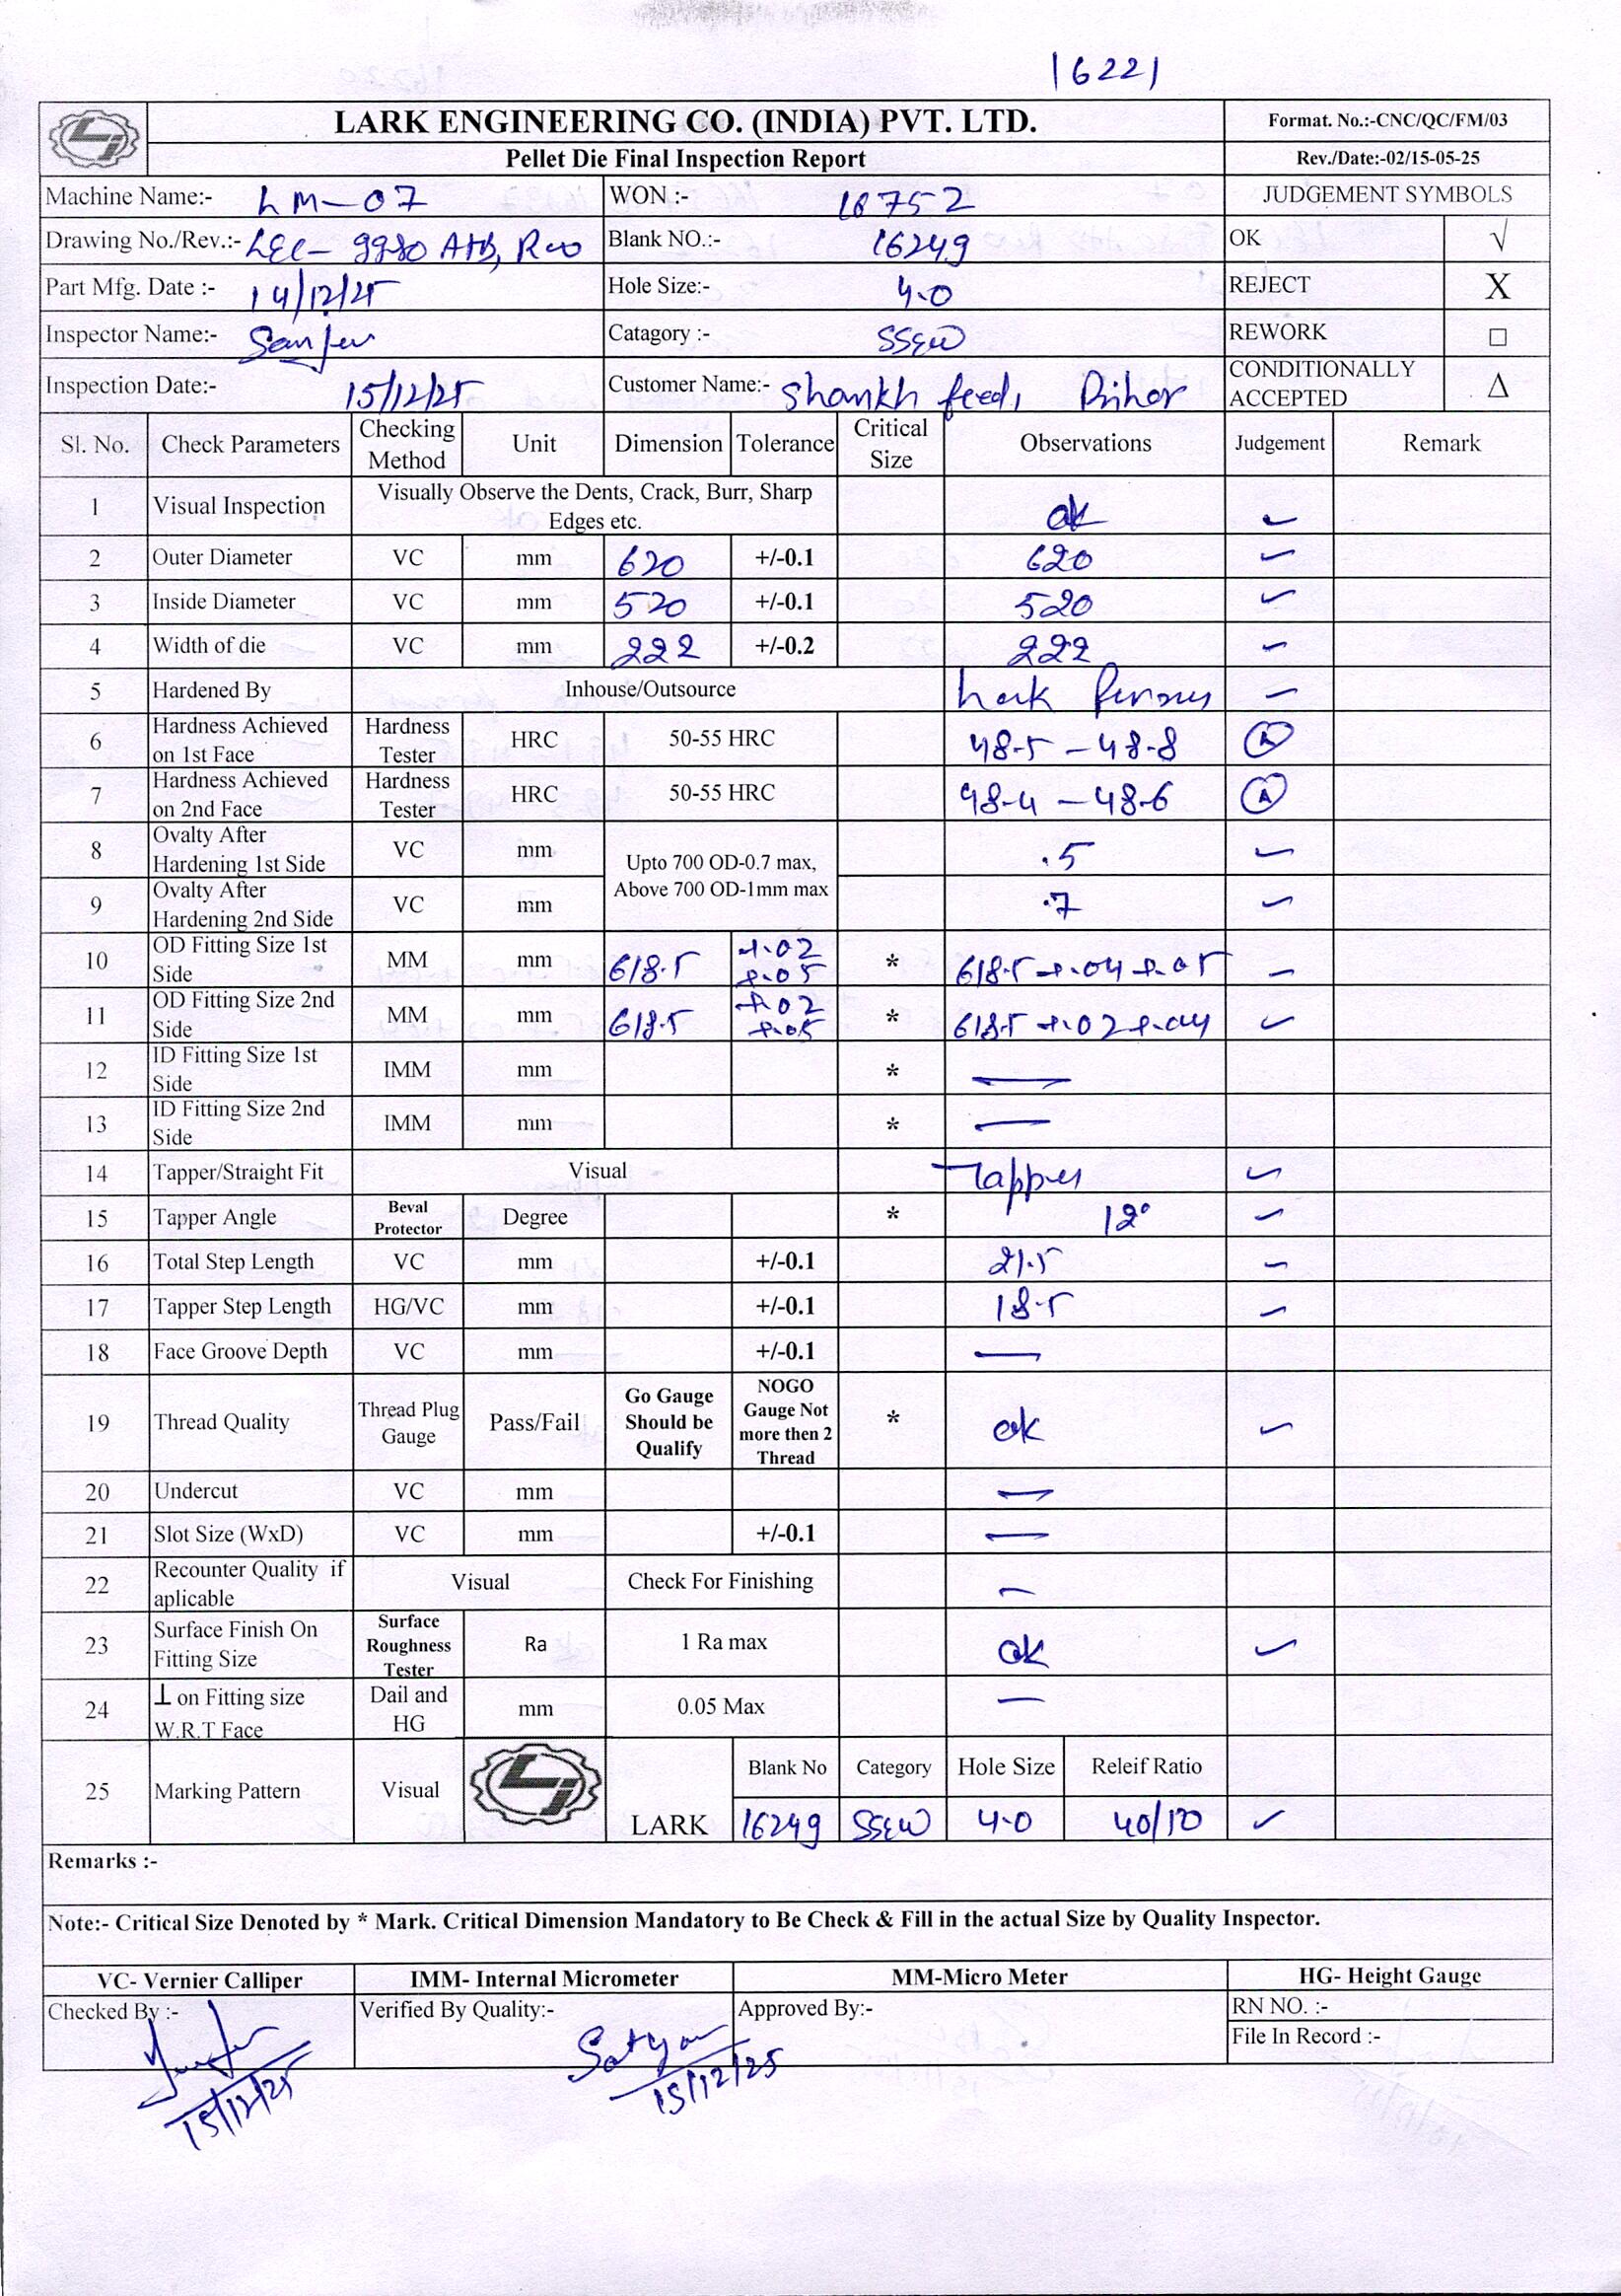 16221
LARK ENGINEERING CO. (INDIA) PVT. LTD.
Format. No.:-CNC/QC/FM/03
Pellet Die Final Inspection Report
Rev./Date:-02/15-05-25
Machine Name:- LM-07 WON :- 18752 JUDGEMENT SYMBOLS
Drawing No./Rev.:- LEC- 9980 Blank NO.:- 16249 OK √
Part Mfg. Date :- 14/12/25 Hole Size:- 4.0 REJECT X
Inspector Name:- Catagory :- SSEW REWORK □
Inspection Date:- 15/12/25 Customer Name:- Shankh feed, CONDITIONALLY ACCEPTED Δ
Sl. No. Check Parameters Checking Method Unit Dimension Tolerance Critical Size Observations Judgement Remark
1 Visual Inspection Visually Observe the Dents, Crack, Burr, Sharp Edges etc. ok ✓
2 Outer Diameter VC mm 620 +/-0.1 620 ✓
3 Inside Diameter VC mm 520 +/-0.1 520 ✓
4 Width of die VC mm 222 +/-0.2 222 ✓
5 Hardened By Inhouse/Outsource Lark ✓
6 Hardness Achieved on 1st Face Hardness Tester HRC 50-55 HRC 48.5 - 48.8 A
7 Hardness Achieved on 2nd Face Hardness Tester HRC 50-55 HRC 48.4 - 48.6 A
8 Ovalty After Hardening 1st Side VC mm Upto 700 OD-0.7 max, Above 700 OD-1mm max .5 ✓
9 Ovalty After Hardening 2nd Side VC mm .7 ✓
10 OD Fitting Size 1st Side MM mm 618.5 +.02 +.05 * 618.5 +.04 +.05 ✓
11 OD Fitting Size 2nd Side MM mm 618.5 +.02 +.05 * 618.5 +.02 +.04 ✓
12 ID Fitting Size 1st Side IMM mm * —
13 ID Fitting Size 2nd Side IMM mm * —
14 Tapper/Straight Fit Visual Tapper ✓
15 Tapper Angle Beval Protector Degree * 12° ✓
16 Total Step Length VC mm +/-0.1 21.5 ✓
17 Tapper Step Length HG/VC mm +/-0.1 18.5 ✓
18 Face Groove Depth VC mm +/-0.1 —
19 Thread Quality Thread Plug Gauge Pass/Fail Go Gauge Should be Qualify NOGO Gauge Not more then 2 Thread * ok ✓
20 Undercut VC mm —
21 Slot Size (WxD) VC mm +/-0.1 —
22 Recounter Quality if aplicable Visual Check For Finishing —
23 Surface Finish On Fitting Size Surface Roughness Tester Ra 1 Ra max ok ✓
24 ⊥ on Fitting size W.R.T Face Dail and HG mm 0.05 Max —
25 Marking Pattern Visual LARK Blank No Category Hole Size Releif Ratio
16249 SSEW 4.0 40/10 ✓
Remarks :-
Note:- Critical Size Denoted by * Mark. Critical Dimension Mandatory to Be Check & Fill in the actual Size by Quality Inspector.
VC- Vernier Calliper IMM- Internal Micrometer MM-Micro Meter HG- Height Gauge
Checked By :- Verified By Quality:- Approved By:- RN NO. :-
File In Record :-
Satyam
15/12/25 15/12/25